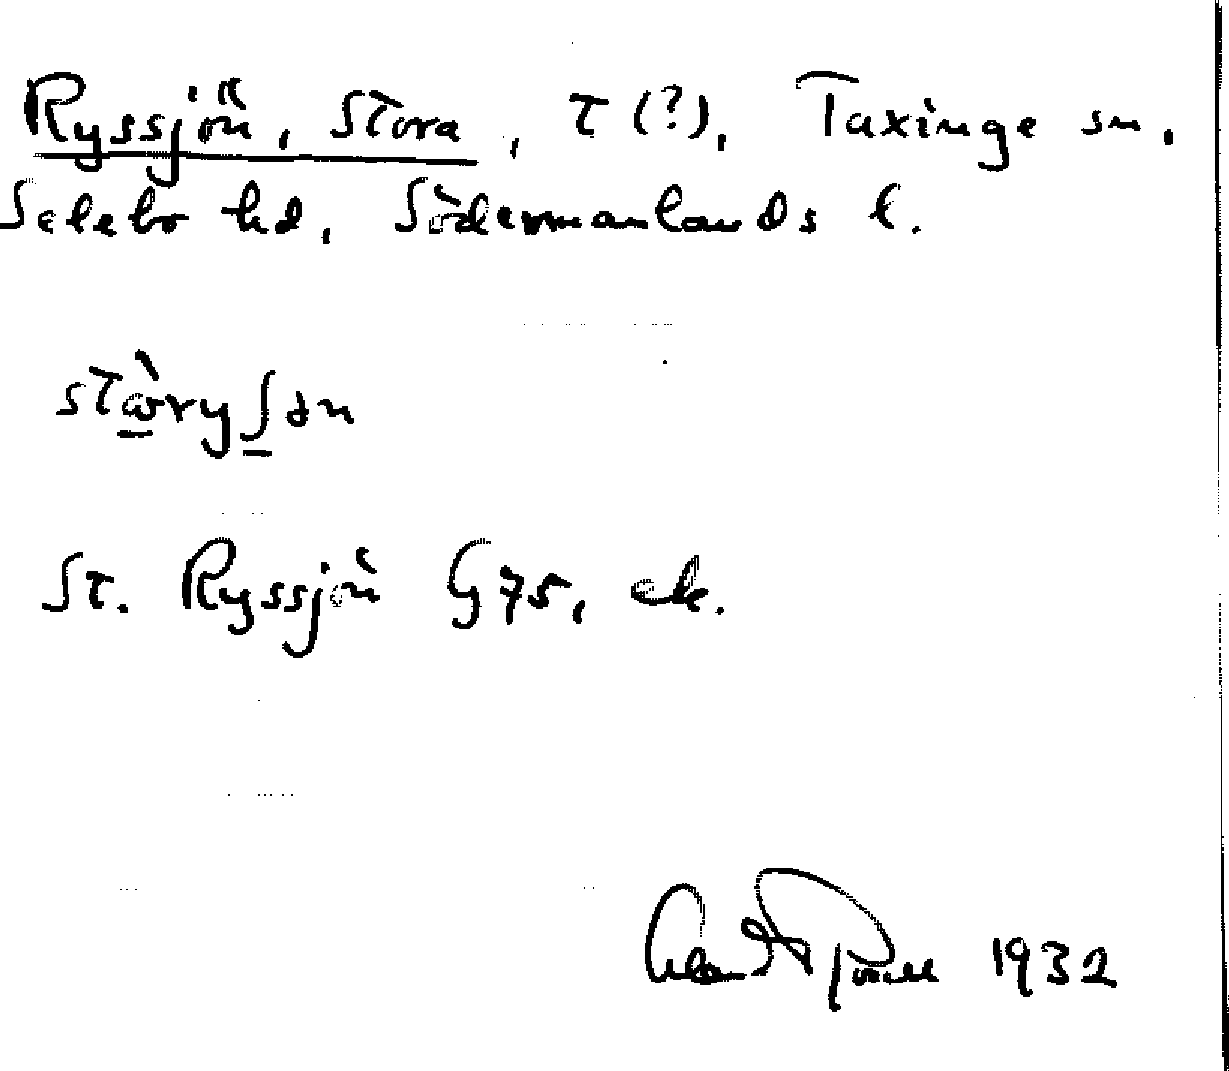 Ryssjön, Stora, t (?), Taxinge sn,
Selebo hd, Södermanlands l.
St. Ryssjön G 75, ek.
1932